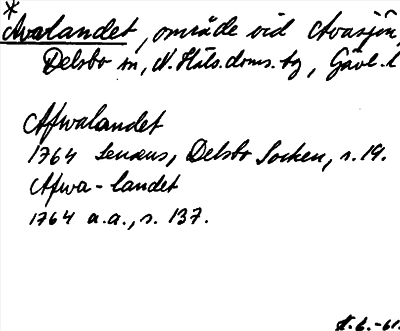 *
Avalandet, område vid Avasjön,
Delsbo sn, N. Häls. doms. tg, Gävl. l
Afwalandet
1764 Lenæus, Delsbo Socken, s. 19.
Afwa-landet
1764 a.a., s. 137.